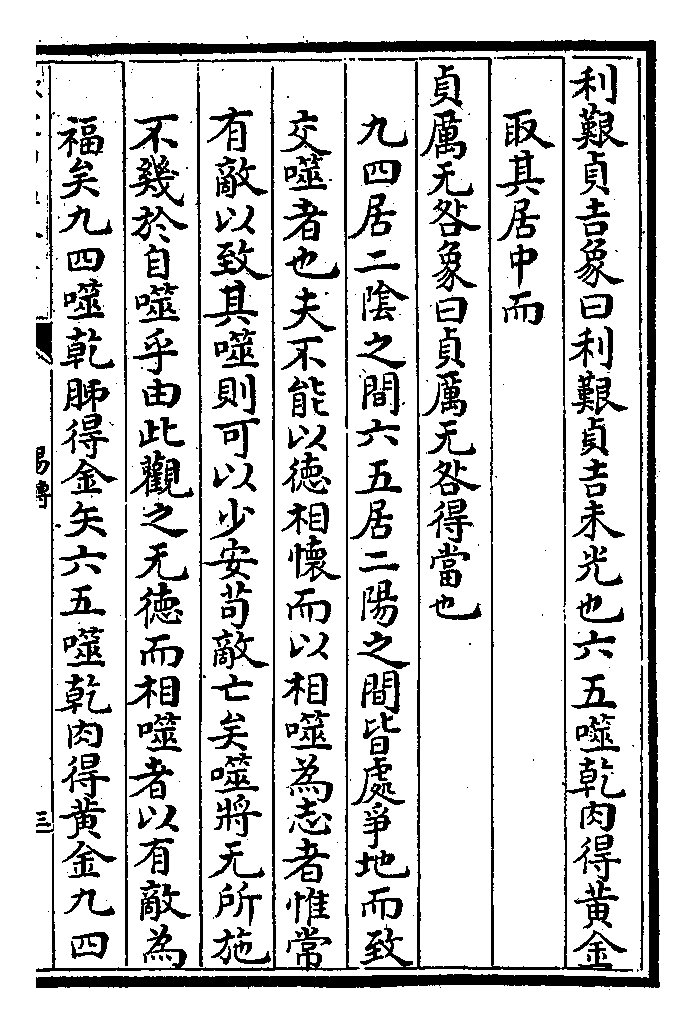 利艱貞吉象曰利艱貞吉未光也六五噬乾肉得黃金
取其居中而
貞厲无咎象曰貞厲无咎得當也
九四居二陰之間六五居二陽之間皆處爭地而致
交噬者也夫不能以德相懷而以相噬為志者惟常
有敵以致其噬則可以少安苟敵亡矣噬將无所施
不幾於自噬乎由此觀之无徳而相噬者以有敵為
福矣九四噬乾胏得金矢六五噬乾肉得黃金九四
易傳
三